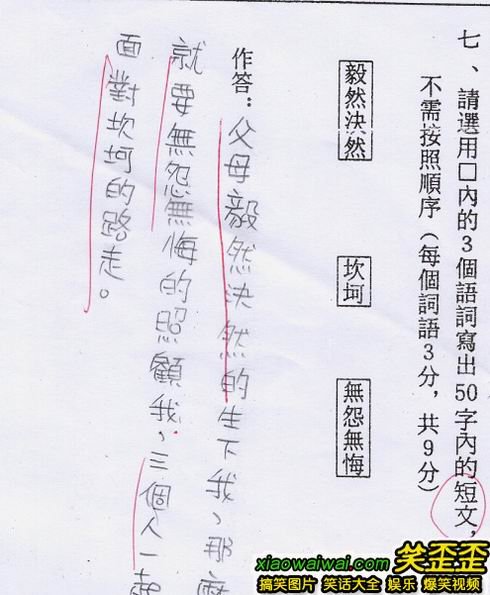 七、請選用□內的3個語詞寫出50字內的短文，
不需按照順序（每個詞語3分，共9分）
毅然決然
坎坷
無怨無悔
作答：父母毅然決然的生下我、那麼
就要無怨無悔的照顧我、三個人一起
面對坎坷的路走。
xiaowaiwai.com 笑歪歪
搞笑图片 笑话大全 娱乐 爆笑视频